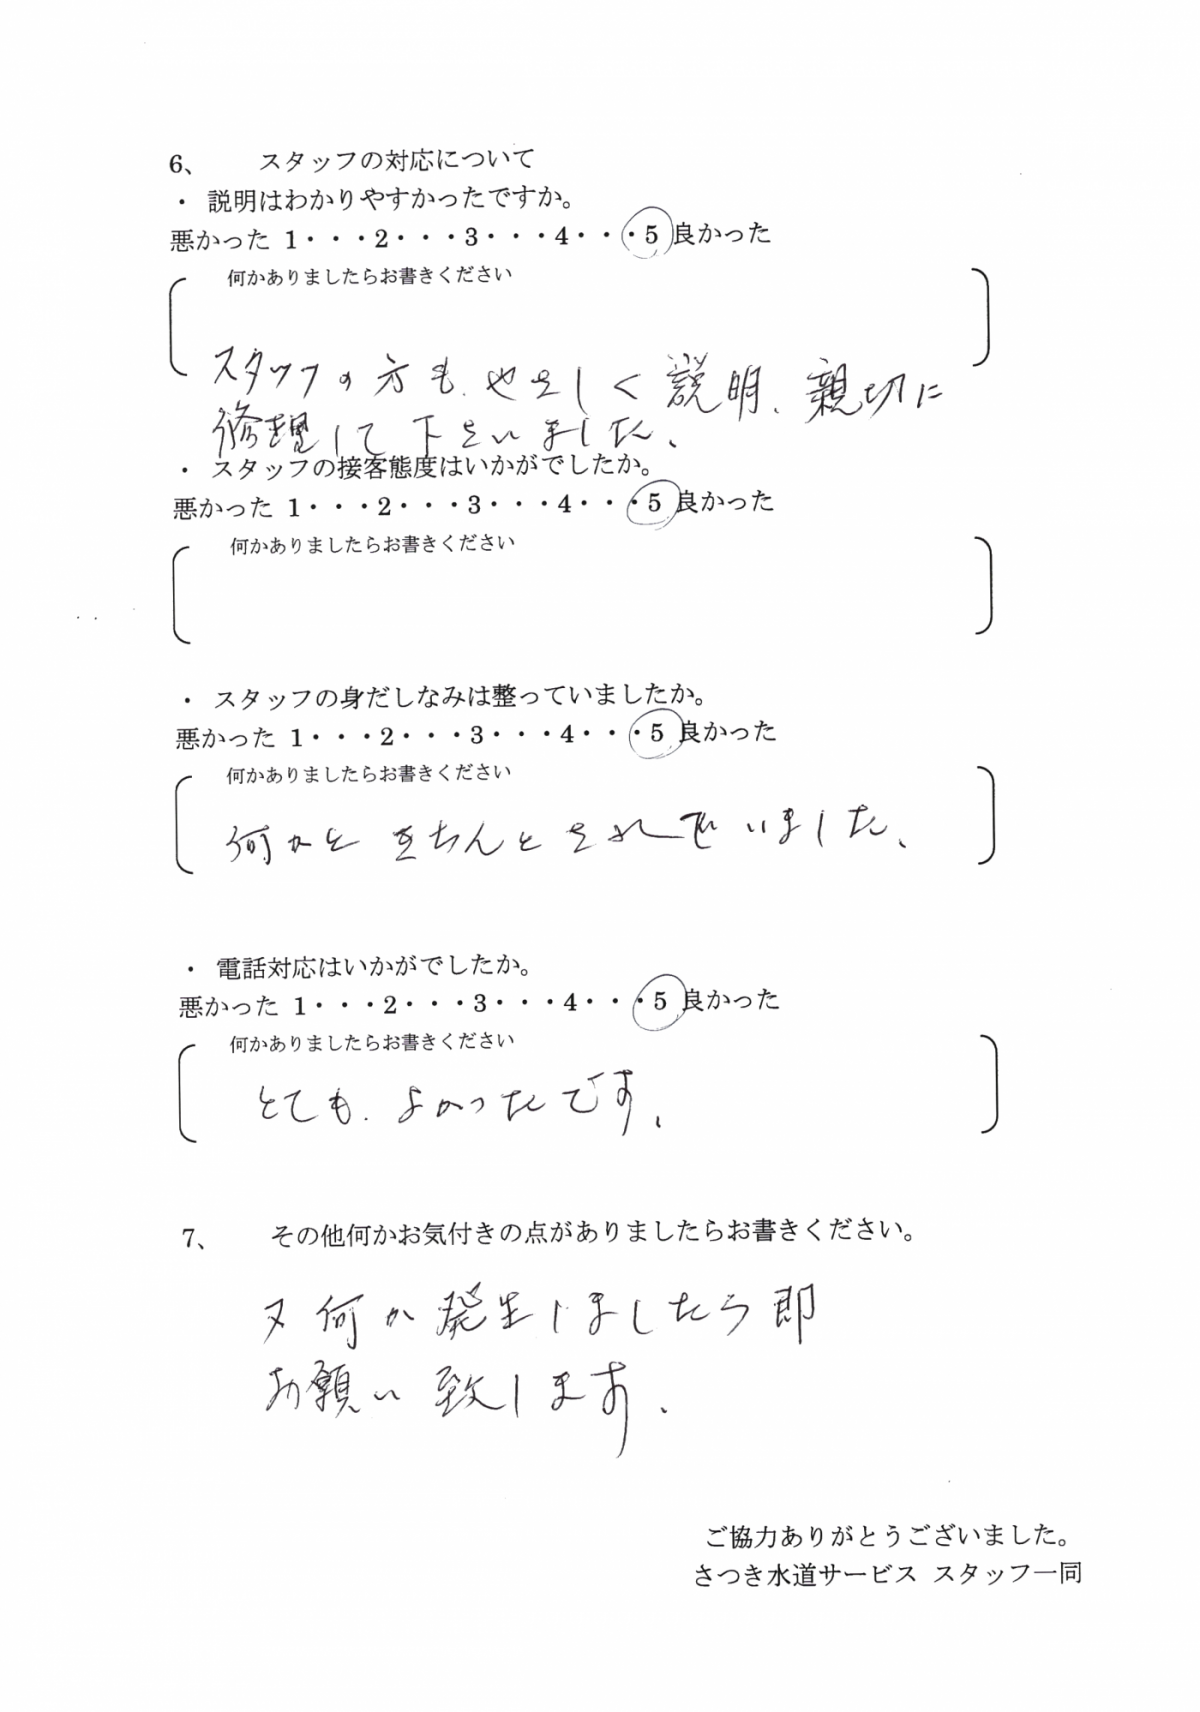 6、 スタッフの対応について
・ 説明はわかりやすかったですか。
悪かった 1・・・2・・・3・・・4・・・5 良かった
何かありましたらお書きください
スタッフの方も、やさしく説明、親切に
修理して下さいました、
・ スタッフの接客態度はいかがでしたか。
悪かった 1・・・2・・・3・・・4・・・5 良かった
何かありましたらお書きください
・ スタッフの身だしなみは整っていましたか。
悪かった 1・・・2・・・3・・・4・・・5 良かった
何かありましたらお書きください
何かときちんとされていました、
・ 電話対応はいかがでしたか。
悪かった 1・・・2・・・3・・・4・・・5 良かった
何かありましたらお書きください
とても、よかったです、
7、 その他何かお気付きの点がありましたらお書きください。
又何か発生しましたら即
お願い致します、
ご協力ありがとうございました。
さつき水道サービス スタッフ一同